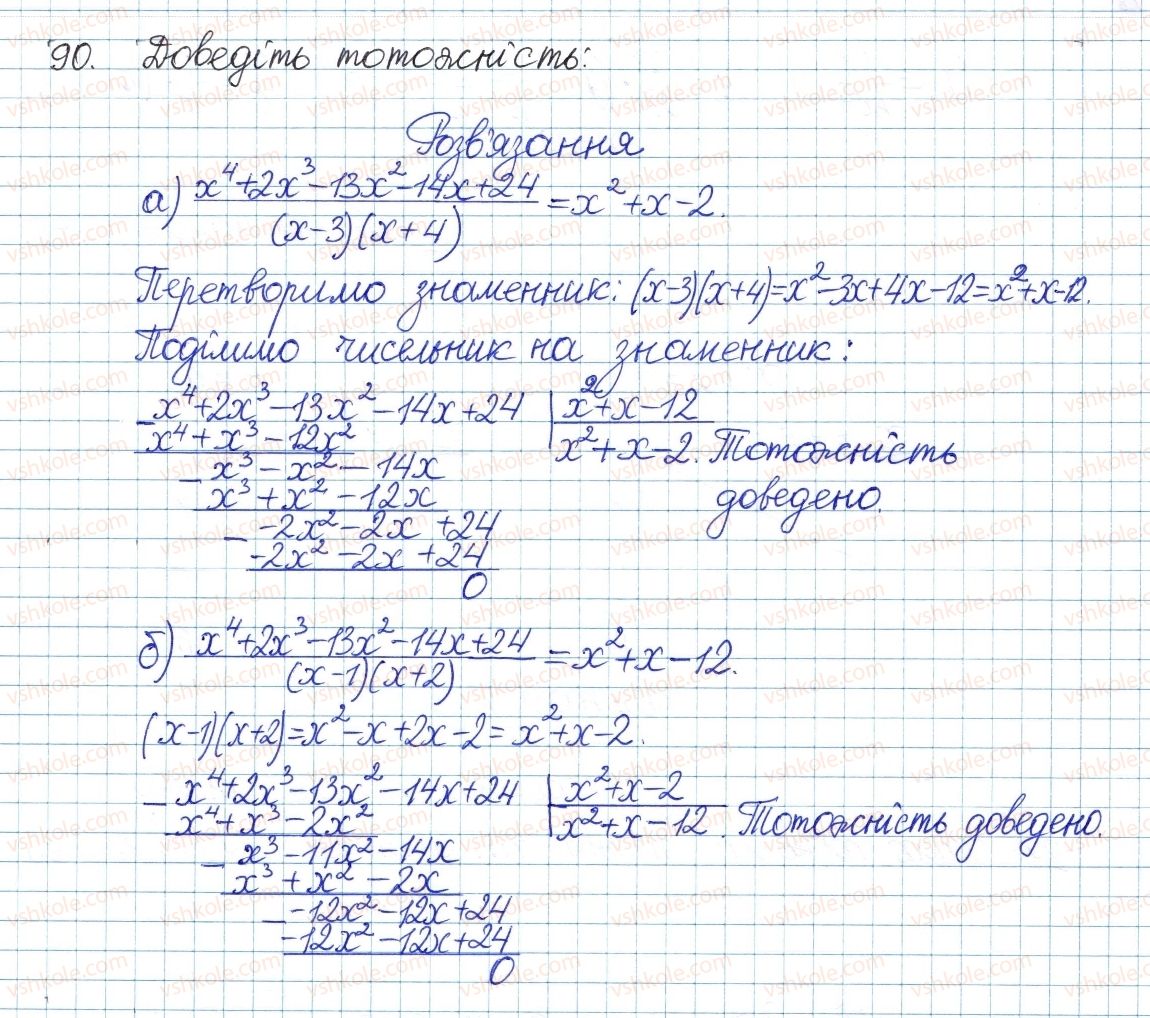 90. Доведіть тотожність:
Розв'язання
а) (x⁴+2x³-13x²-14x+24)/((x-3)(x+4)) = x²+x-2.
Перетворимо знаменник: (x-3)(x+4)=x²-3x+4x-12=x²+x-12.
Поділимо чисельник на знаменник:
_x⁴+2x³-13x²-14x+24 | x²+x-12
x⁴+x³-12x² | x²+x-2. Тотожність
_x³-x²-14x доведено.
x³+x²-12x
_-2x²-2x+24
-2x²-2x+24
0
б) (x⁴+2x³-13x²-14x+24)/((x-1)(x+2)) = x²+x-12.
(x-1)(x+2)=x²-x+2x-2=x²+x-2.
_x⁴+2x³-13x²-14x+24 | x²+x-2
x⁴+x³-2x² | x²+x-12. Тотожність доведено.
_x³-11x²-14x
x³+x²-2x
_-12x²-12x+24
-12x²-12x+24
0